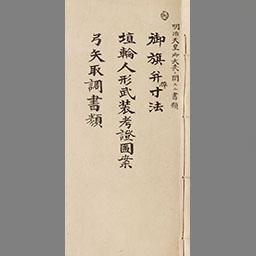 明治天皇御大喪ニ関スル書類
御旗弁寸法
埴輪人形武装考證圖案
弓矢取調書類